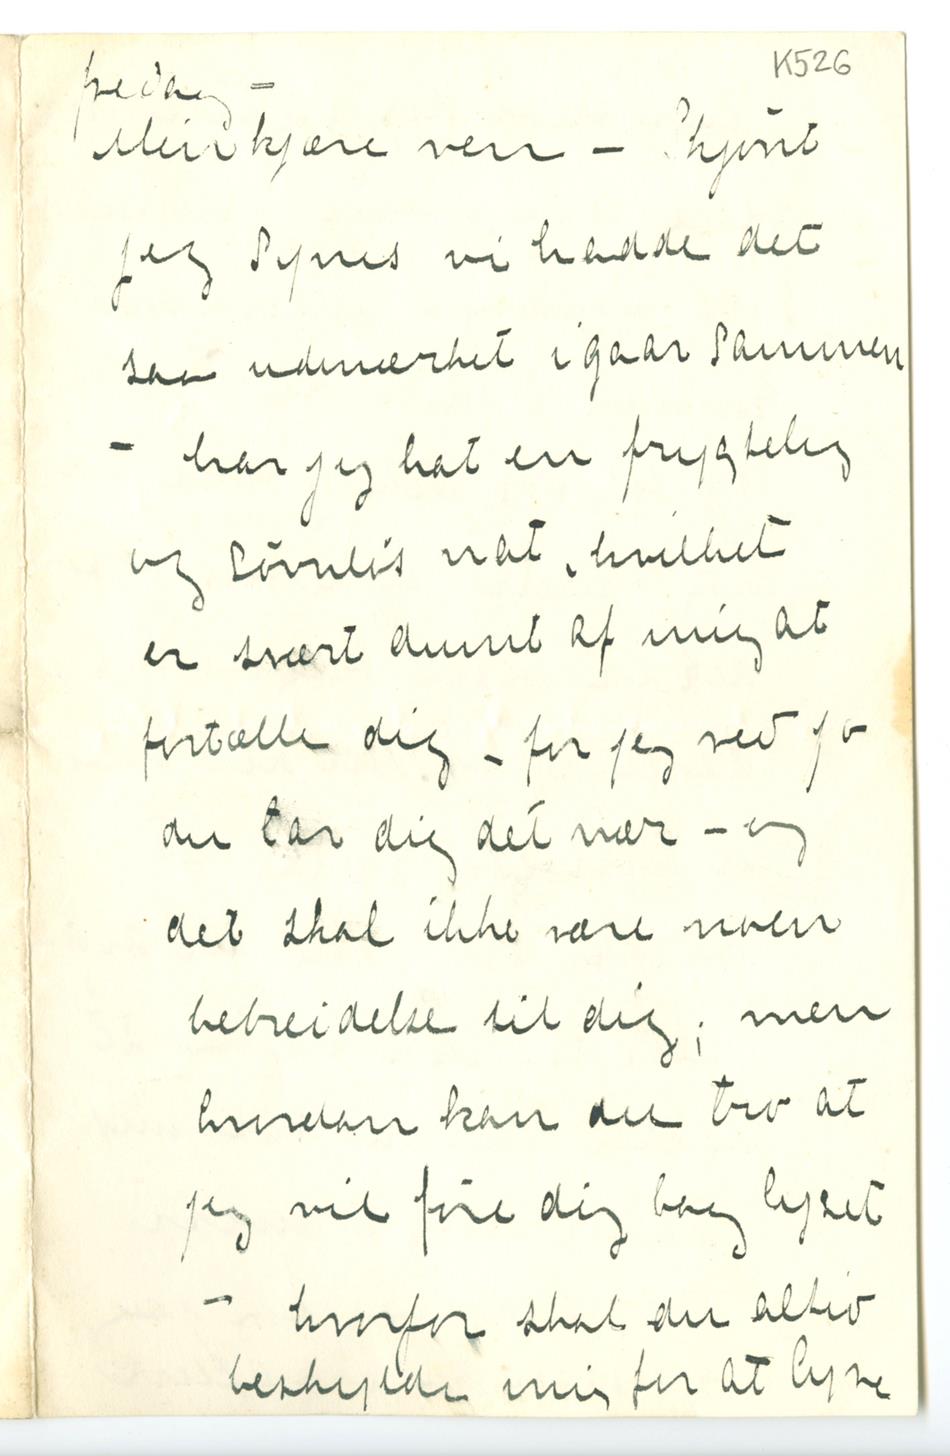 K526
fredag —
Min kjære ven — Skjønt
jeg synes vi hadde det
saa udmærket igaar sammen
— har jeg hat en frygtelig
og søvnløs nat, hvilket
er svært dumt af mig at
fortælle dig – for jeg ved jo
du tar dig det nær – og
det skal ikke være noen
bebreidelse til dig; men
hvordan kan du tro at
jeg vil føre dig bag lyset
— hvorfor skal du altid
beskylde mig for at lyve